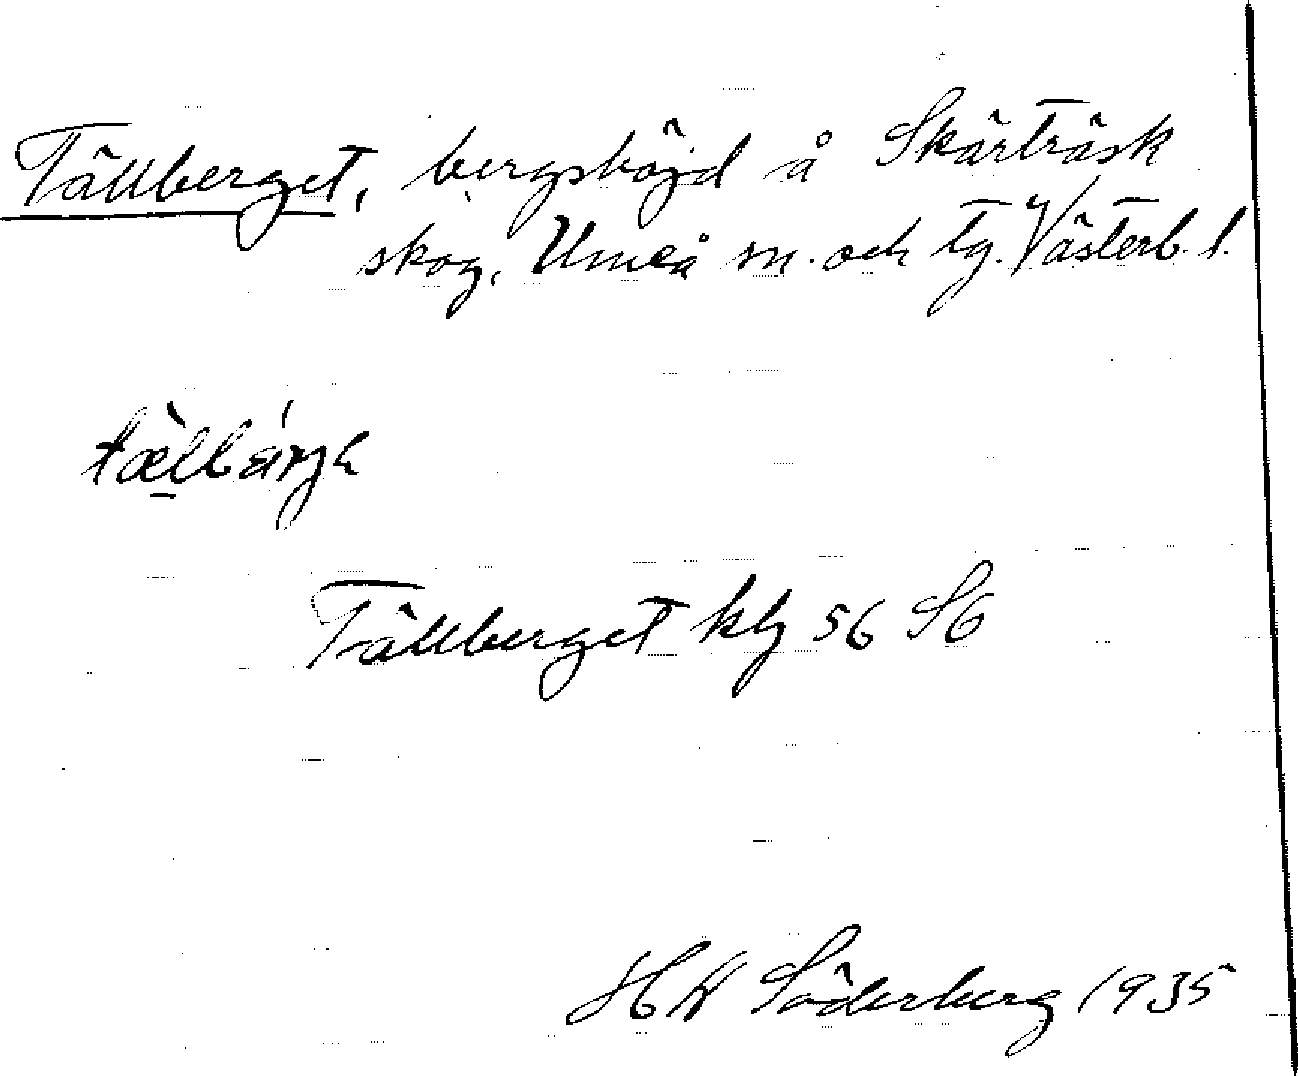 Tällberget, bergshöjd å Skärträsk
skog, Umeå sn. och tg. Västerb. l.
Tällberget kbg 56 S6
HW Söderberg 1935